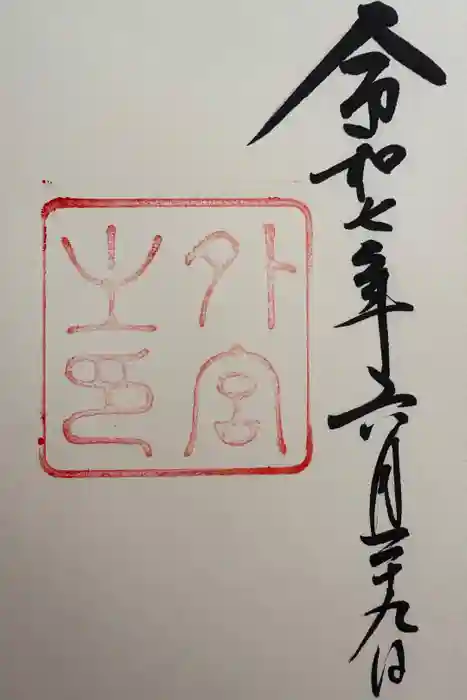 令和七年六月二十九日
外宮
之印